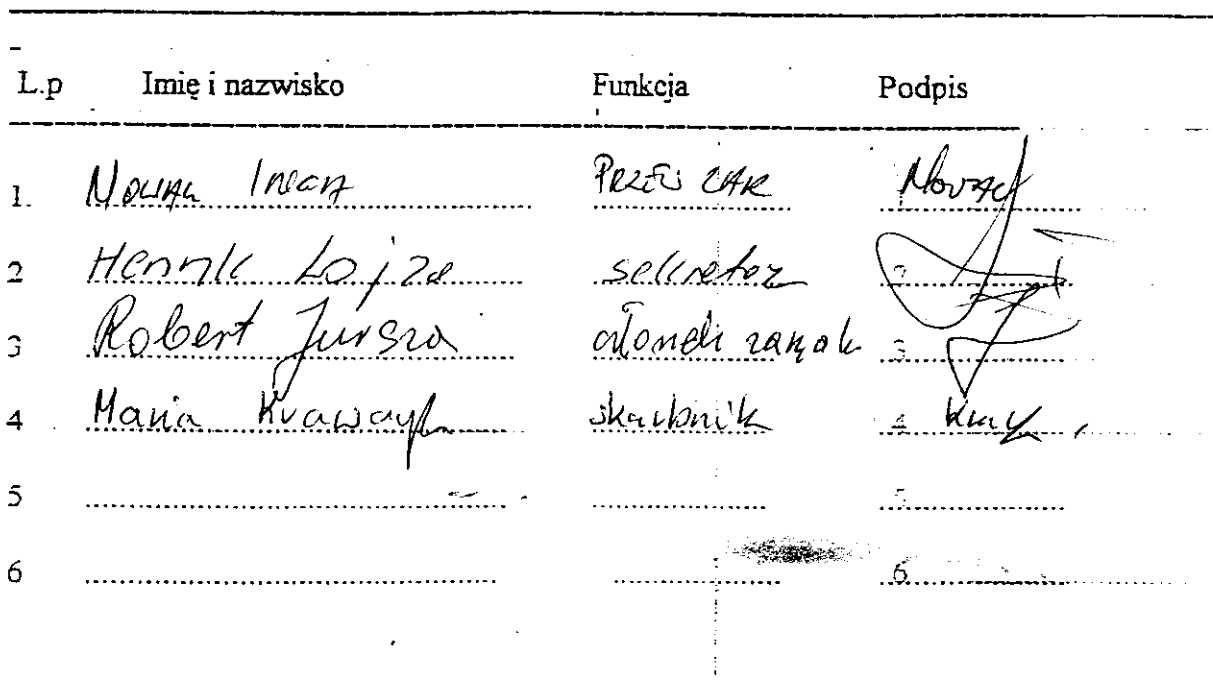 L.p Imię i nazwisko Funkcja Podpis
1. Nowak Irena PRZEW ZAR Nowak
2 Henryk Łojza sekretarz 2
3 Robert Jursza członek zarządu 3
4 Maria Krawczyk skarbnik 4
5 5
6 6